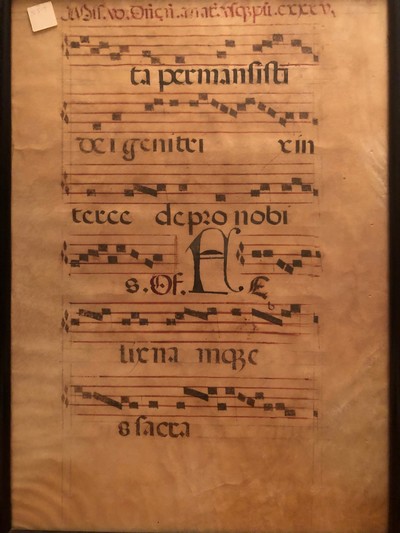 ta permansisti
dei genitri x in
terce de pro nobi
s. Of. F E
lix na mqꝫ e
s sacra